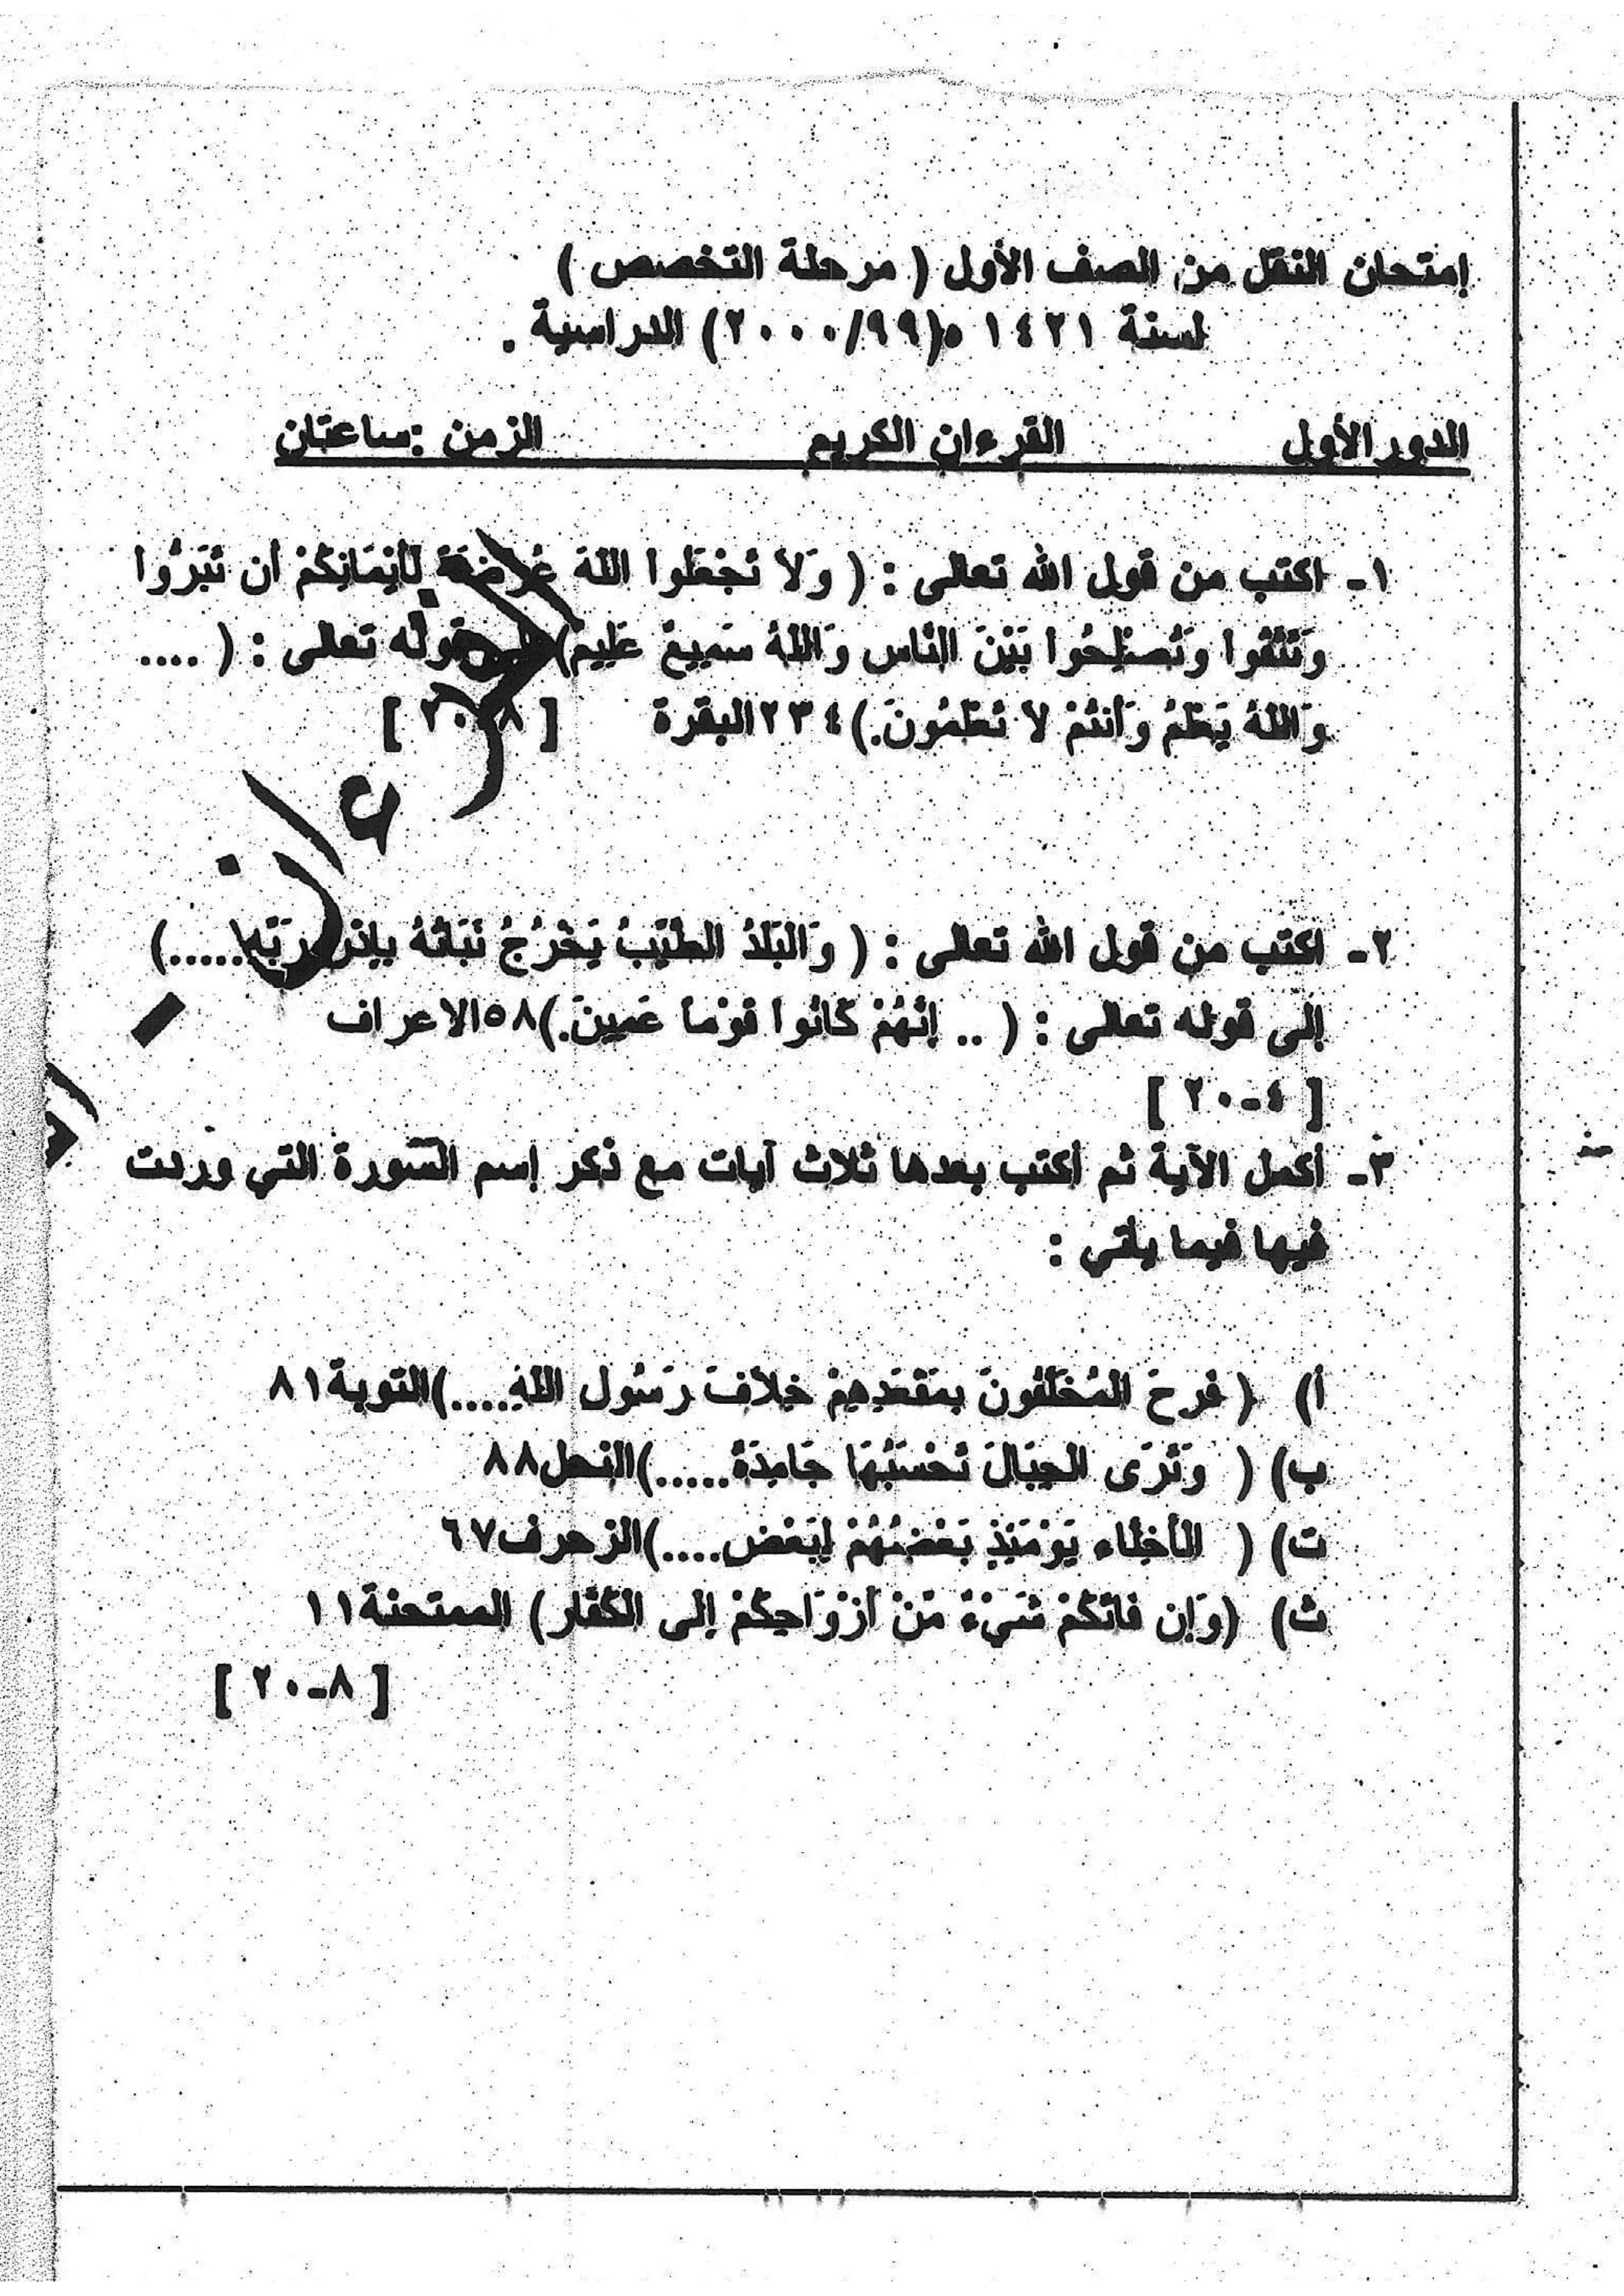 إمتحان النقل من الصف الأول ( مرحلة التخصص )
لسنة ١٤٢١ ه(٢٠٠٠/٩٩) الدراسية .
الدور الأول القرءان الكريم الزمن :ساعتان
١- اكتب من قول الله تعالى : ( وَلاَ تَجْعَلُوا اللَّهَ عُرْضَةً لِّأَيْمَانِكُمْ أَن تَبَرُّوا
وَتَتَّقُوا وَتُصْلِحُوا بَيْنَ النَّاسِ وَاللَّهُ سَمِيعٌ عَلِيمٌ) قوله تعالى : ( ....
وَاللَّهُ يَعْلَمُ وَأَنتُمْ لاَ تَعْلَمُونَ.) ٢٣٤البقرة [ ٨-٢٠ ]
القرءان
٢- اكتب من قول الله تعالى : ( وَالْبَلَدُ الطَّيِّبُ يَخْرُجُ نَبَاتُهُ بِإِذْنِ رَبِّهِ.....)
إلى قوله تعالى : ( .. إِنَّهُمْ كَانُوا قَوْماً عَمِينَ.)٥٨الاعراف
[ ٤-٢٠ ]
٣- أكمل الآية ثم أكتب بعدها ثلاث آيات مع ذكر إسم السورة التي وردت
فيها فيما يأتي :
أ) ( فَرِحَ الْمُخَلَّفُونَ بِمَقْعَدِهِمْ خِلاَفَ رَسُولِ اللَّهِ.....)التوبة٨١
ب) ( وَتَرَى الْجِبَالَ تَحْسَبُهَا جَامِدَةً.....)النحل٨٨
ت) ( الأَخِلَّاء يَوْمَئِذٍ بَعْضُهُمْ لِبَعْضٍ....)الزحرف٦٧
ث) (وَإِن فَاتَكُمْ شَيْءٌ مِّنْ أَزْوَاجِكُمْ إِلَى الْكُفَّارِ) الممتحنة١١
[ ٨-٢٠ ]